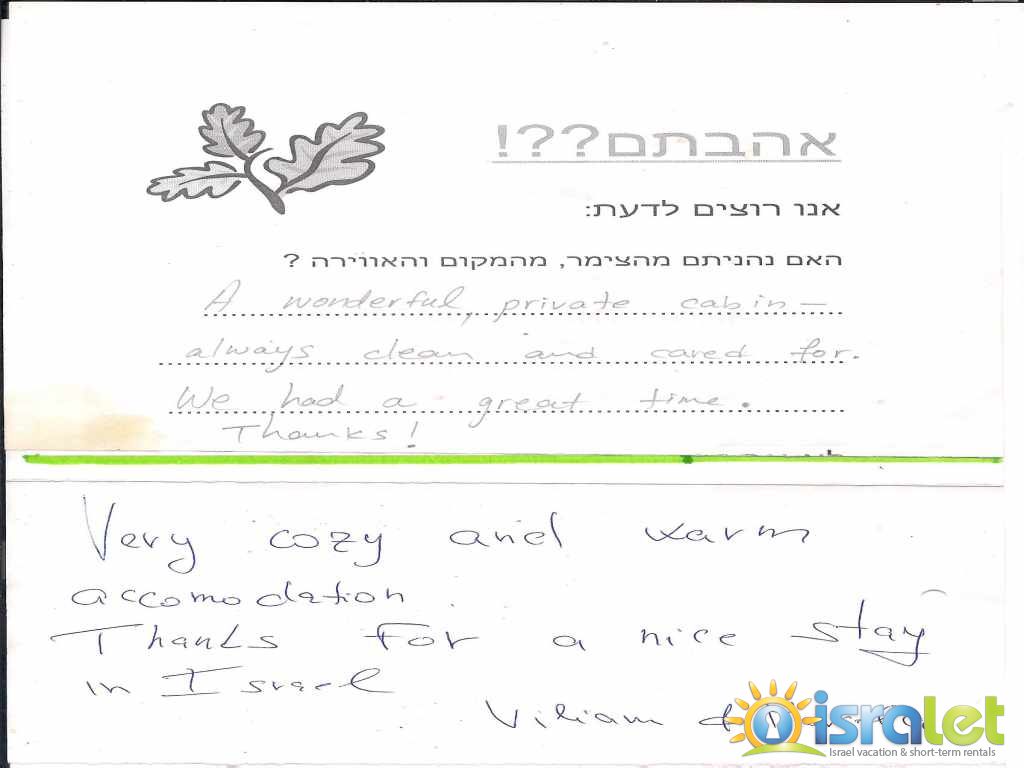 אהבתם???!
אנו רוצים לדעת:
האם נהניתם מהצימר, מהמקום והאווירה ?
A wonderful, private cabin—
always clean and cared for.
We had a great time.
Thanks!
Very cozy and warm
accomodation.
Thanks for a nice stay
in Israel
Viliam &
isralet
Israel vacation & short-term rentals